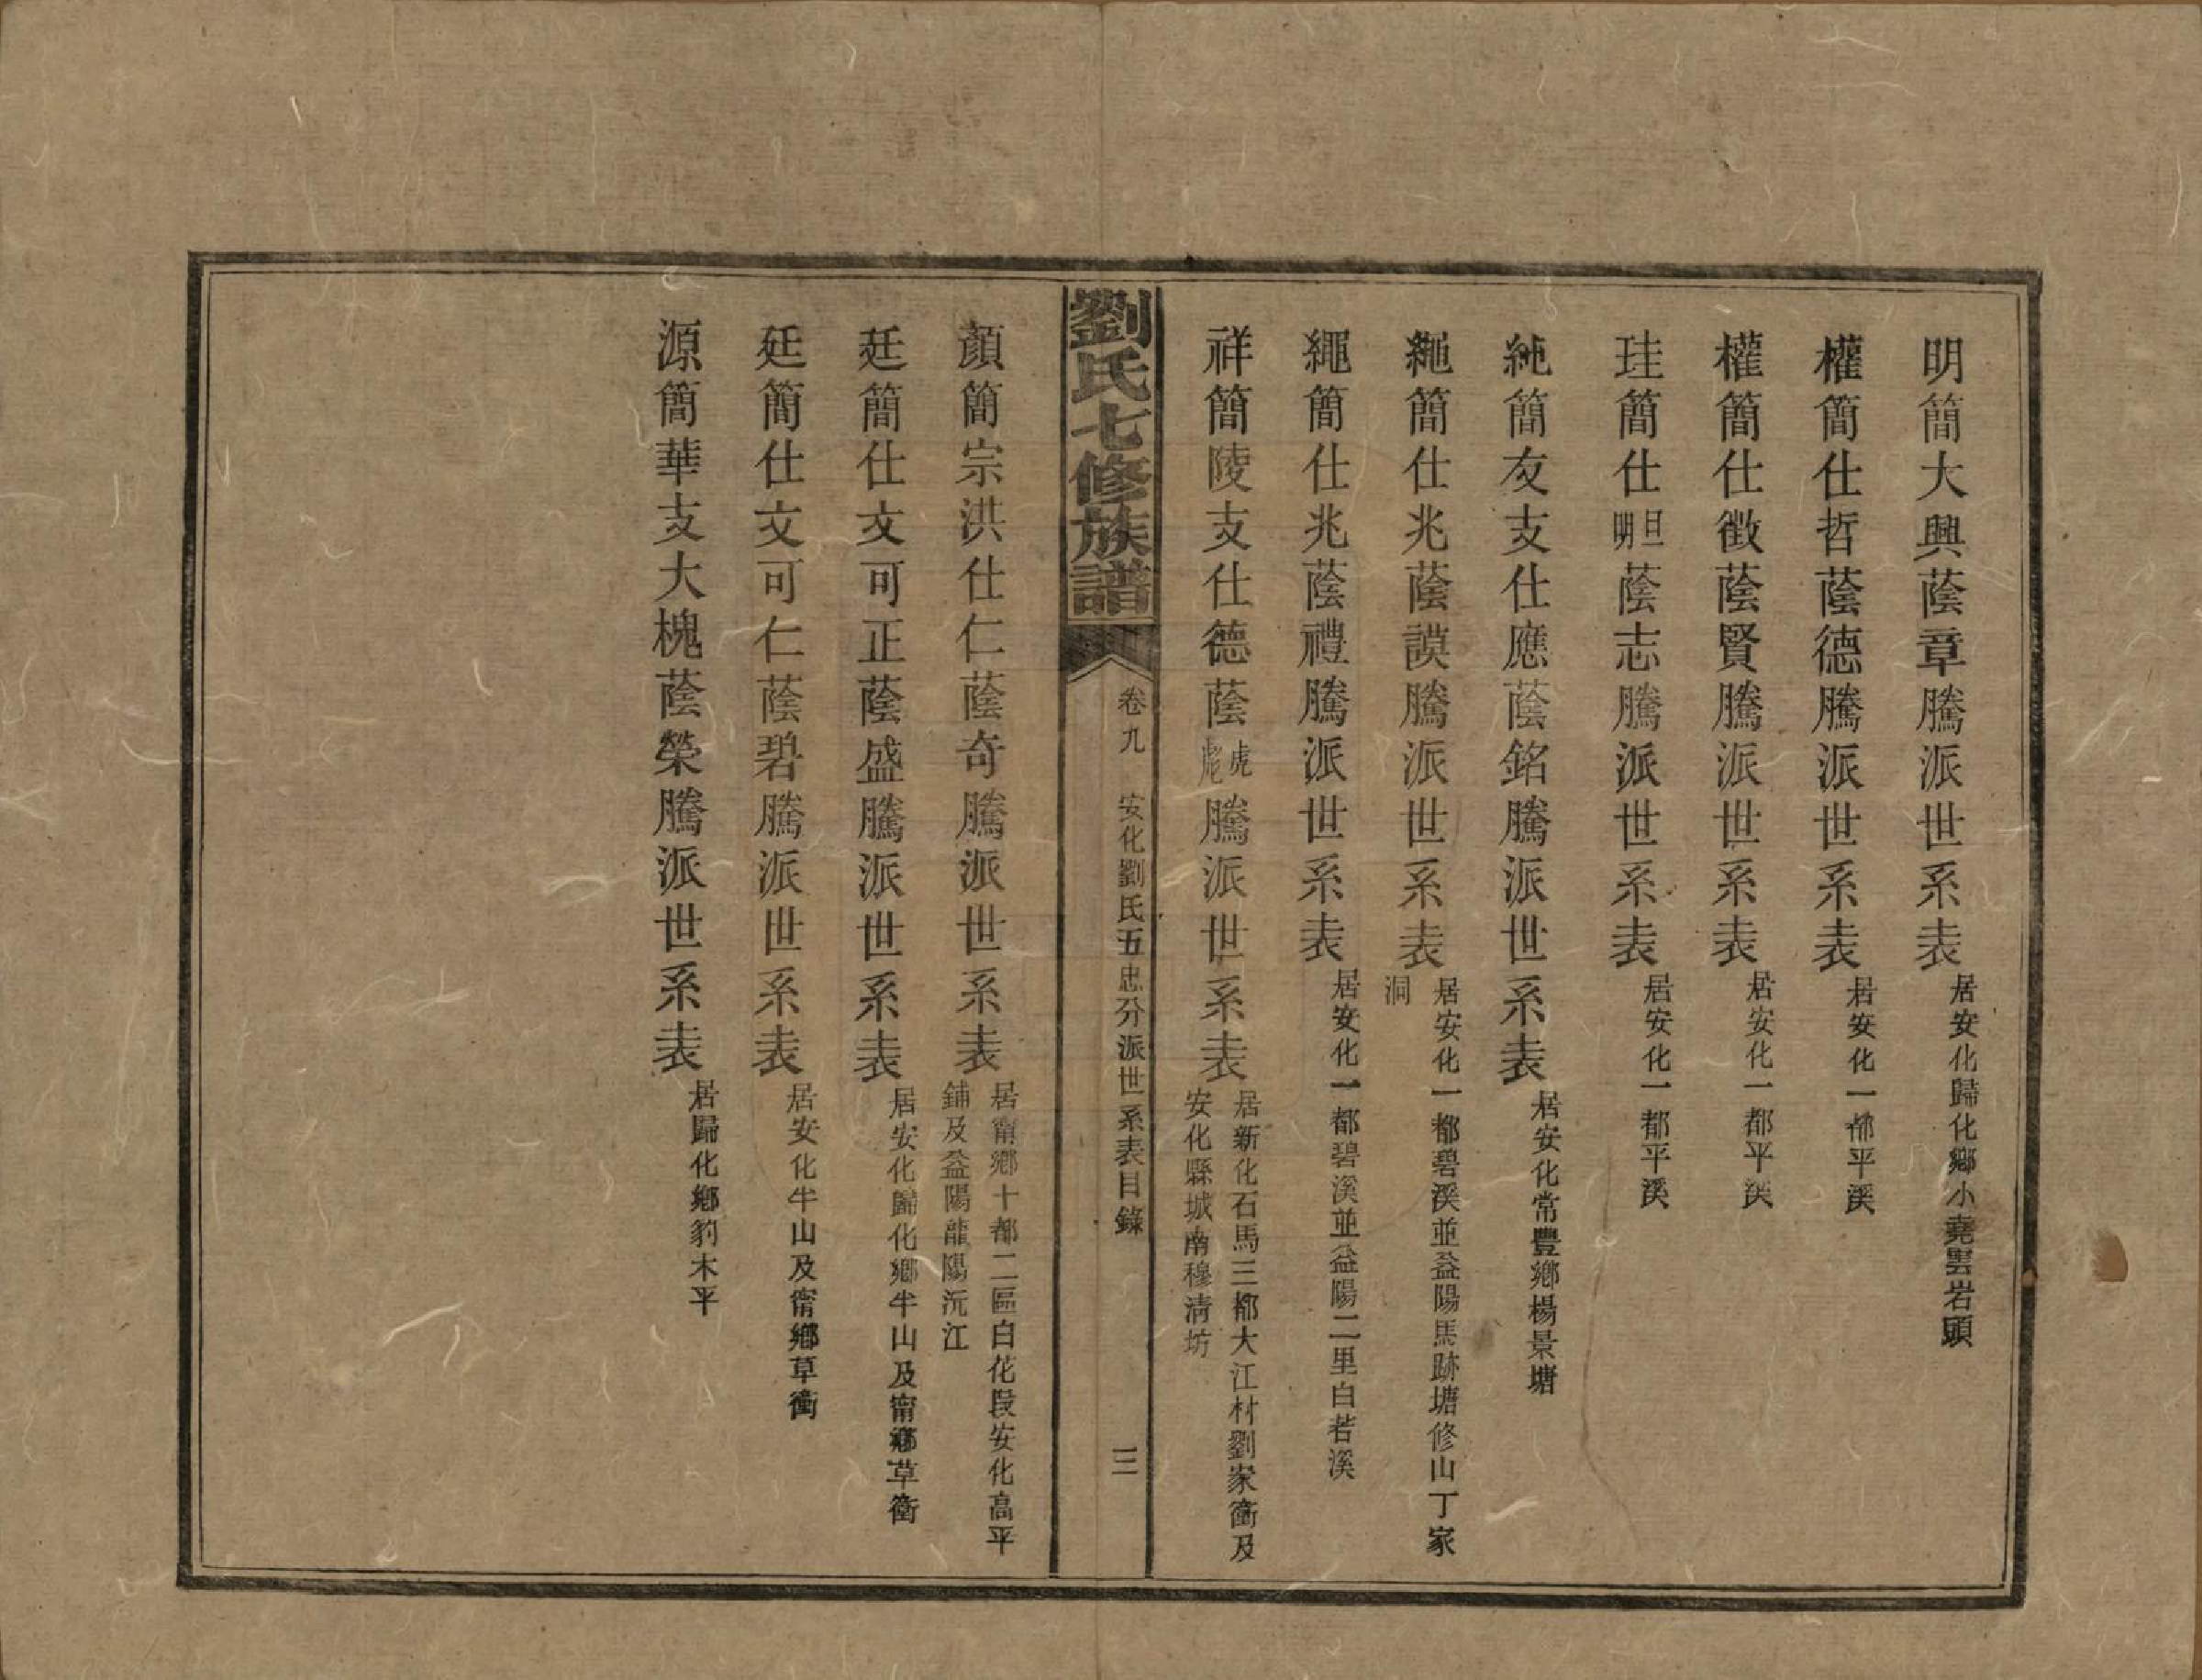 明簡大興蔭章騰派世系表 居安化歸化鄉小堯雲岩頭
權簡仕哲蔭德騰派世系表 居安化一都平溪
權簡仕徵蔭賢騰派世系表 居安化一都平溪
珪簡仕旦明蔭志騰派世系表 居安化一都平溪
純簡友支仕應蔭銘騰派世系表 居安化常豐鄉楊景塘
繩簡仕兆蔭謨騰派世系表 居安化一都碧溪並益陽馬跡塘修山丁家
洞
繩簡仕兆蔭禮騰派世系表 居安化一都碧溪並益陽二里白若溪
祥簡陵支仕德蔭虎彪騰派世系表 居新化石馬三都大江村劉家衝及
安化縣城南穆清坊
劉氏七修族譜 卷九 安化劉氏五忠分派世系表目錄 三
顏簡宗洪仕仁蔭奇騰派世系表 居甯鄉十都二區白花段安化高平
鋪及益陽龍陽沅江
廷簡仕文可正蔭盛騰派世系表 居安化歸化鄉牛山及甯鄉草衝
廷簡仕文可仁蔭碧騰派世系表 居安化牛山及甯鄉草衝
源簡華支大槐蔭榮騰派世系表 居歸化鄉豹木平